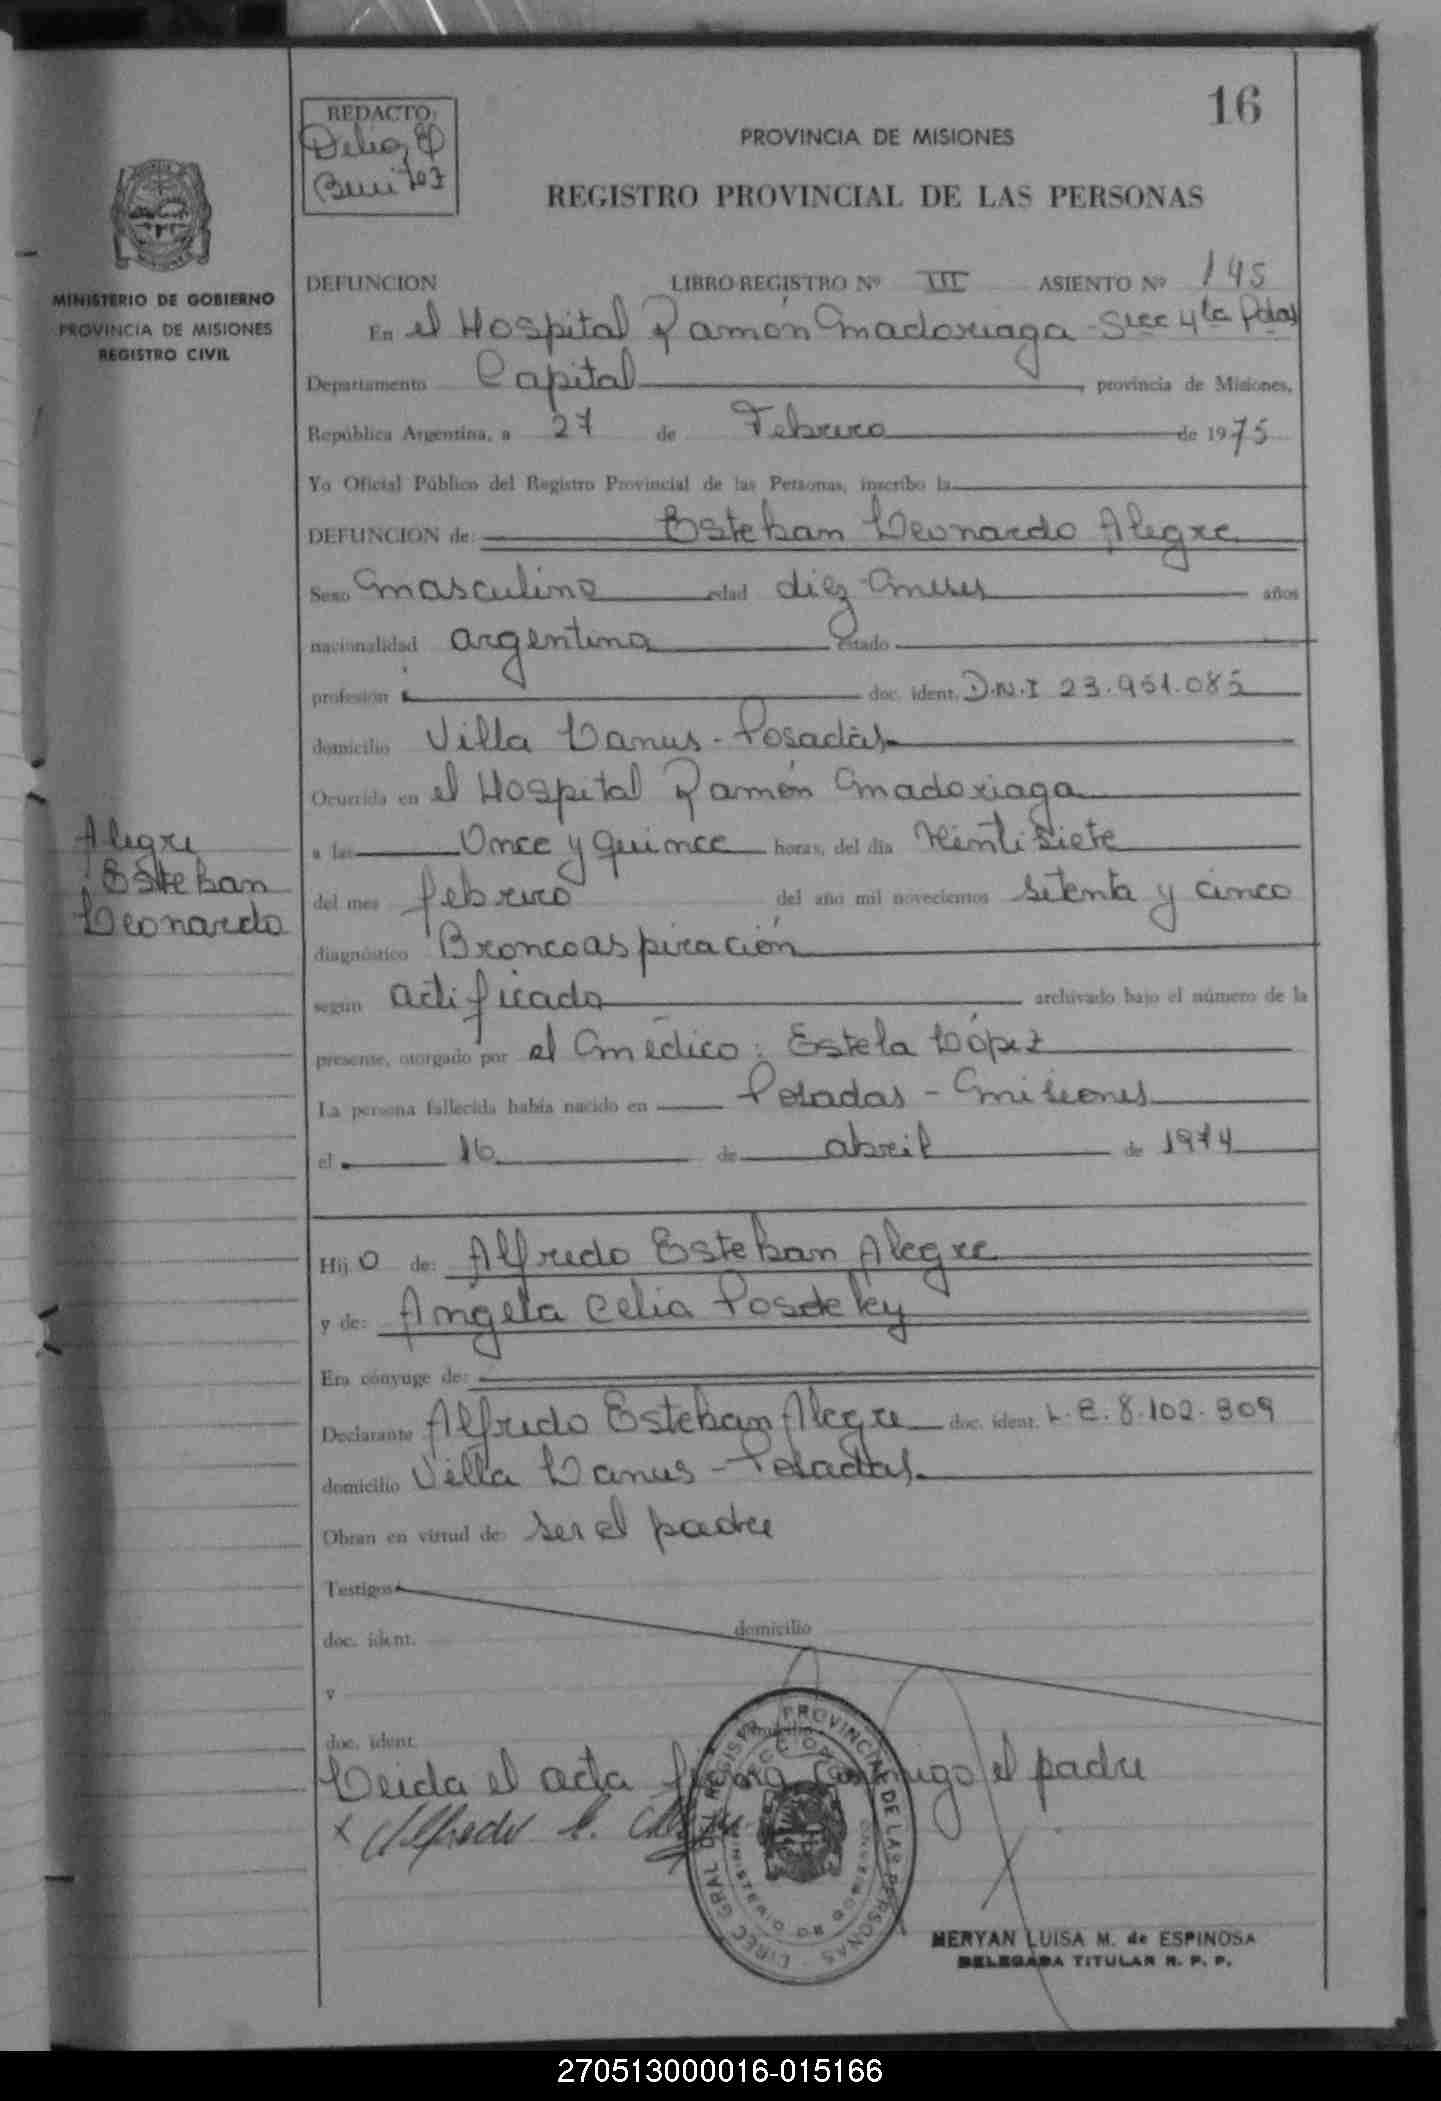 16
REDACTO:
Delia
Benitez
PROVINCIA DE MISIONES
REGISTRO PROVINCIAL DE LAS PERSONAS
MINISTERIO DE GOBIERNO
PROVINCIA DE MISIONES
REGISTRO CIVIL
DEFUNCION LIBRO-REGISTRO Nº III ASIENTO Nº 145
En el Hospital Ramón Madariaga - Secc 4ta Pdas
Departamento Capital, provincia de Misiones,
República Argentina, a 27 de Febrero de 1975
Yo Oficial Público del Registro Provincial de las Personas, inscribo la
DEFUNCION de: Esteban Leonardo Alegre
Sexo Masculino edad diez meses años
nacionalidad argentina estado
profesión doc. ident. D.N.I 23.951.085
domicilio Villa Lanus - Posadas
Ocurrida en el Hospital Ramón Madariaga
a las Once y quince horas, del día Veintisiete
del mes febrero del año mil novecientos setenta y cinco
diagnóstico Broncoaspiración
según certificado archivado bajo el número de la
presente, otorgado por el médico: Estela López
La persona fallecida había nacido en Posadas - Misiones
el 16 de abril de 1974
Alegre
Esteban
Leonardo
Hijo de: Alfredo Esteban Alegre
y de: Angela Celia Posdeley
Era cónyuge de:
Declarante Alfredo Esteban Alegre doc. ident. L.E. 8.102.909
domicilio Villa Lanus - Posadas
Obran en virtud de: ser el padre
Testigos
doc. ident. domicilio
y
doc. ident. domicilio
Leida el acta firma conmigo el padre
x Alfredo E. Alegre
DIREC GRAL DEL REGISTRO PROVINCIAL DE LAS PERSONAS
MINISTERIO DE GOBIERNO
MERYAN LUISA M. de ESPINOSA
DELEGADA TITULAR R. P. P.
270513000016-015166